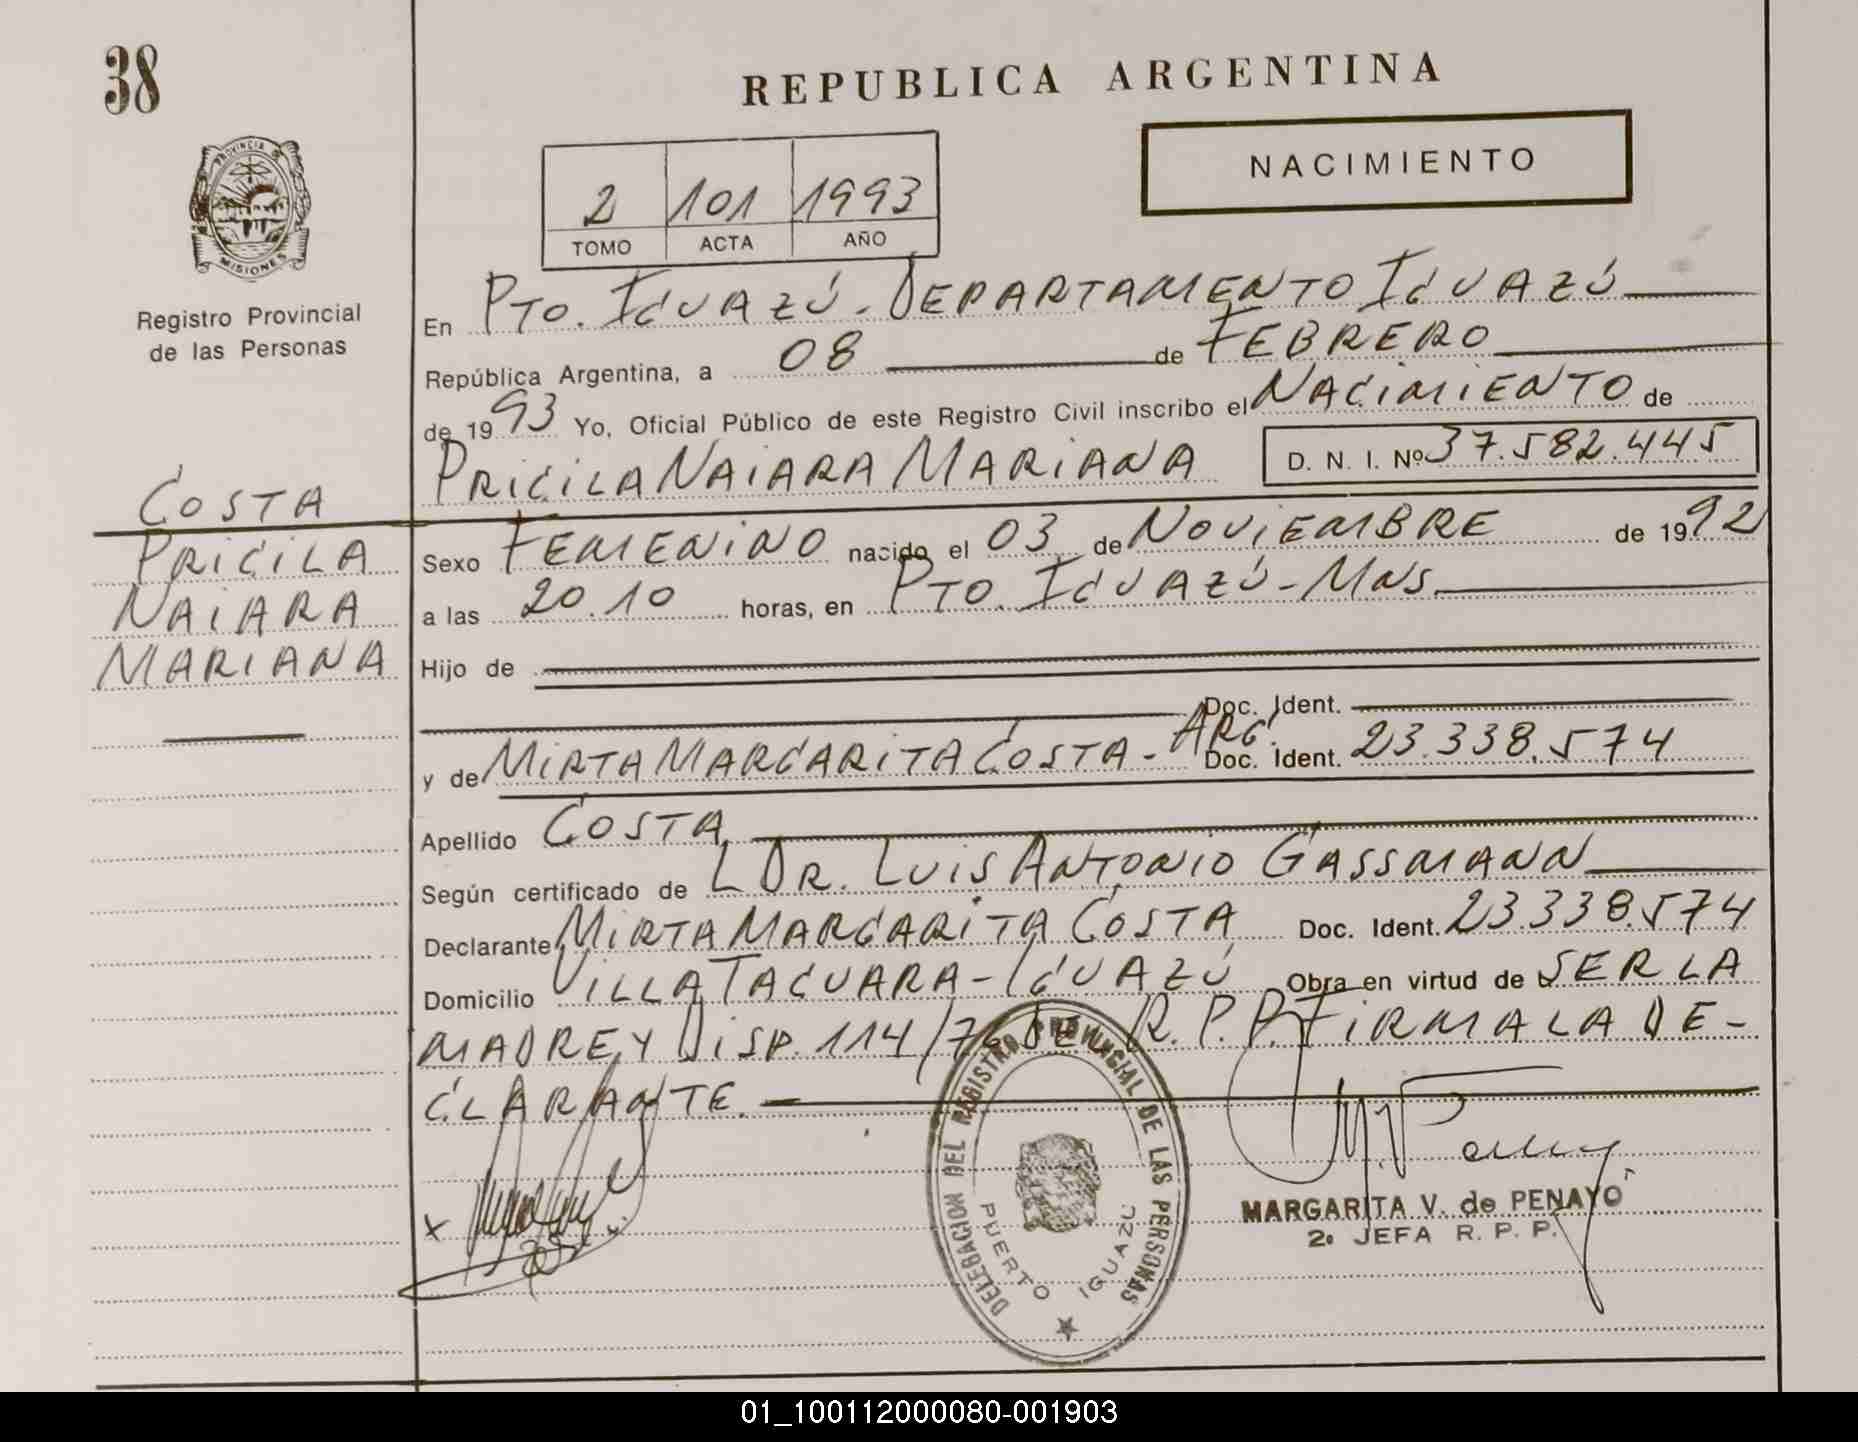 38
REPUBLICA ARGENTINA
NACIMIENTO
2 101 1993
TOMO ACTA AÑO
PROVINCIA DE
MISIONES
Registro Provincial
de las Personas
En PTO. IGUAZÚ. DEPARTAMENTO IGUAZÚ
República Argentina, a 08 de FEBRERO
de 1993 Yo, Oficial Público de este Registro Civil inscribo el NACIMIENTO de
PRICILA NAIARA MARIANA D. N. I. Nº 37.582.445
COSTA
PRICILA
NAIARA
MARIANA
Sexo FEMENINO nacido el 03 de NOVIEMBRE de 1992
a las 20.10 horas, en PTO. IGUAZÚ - MNS.
Hijo de
Doc. Ident.
y de MIRTA MARGARITA COSTA - ARG. Doc. Ident. 23.338.574
Apellido COSTA
Según certificado de L DR. LUIS ANTONIO GASSMANN
Declarante MIRTA MARGARITA COSTA Doc. Ident. 23.338.574
Domicilio VILLA TACUARA - IGUAZÚ Obra en virtud de SER LA
MADRE Y DISP. 114/76 DEL R.P.P. FIRMA LA DE-
CLARANTE.
DELEGACION DEL REGISTRO PROVINCIAL DE LAS PERSONAS
PUERTO IGUAZU
MARGARITA V. de PENAYO
2ª JEFA R. P. P.
01_100112000080-001903